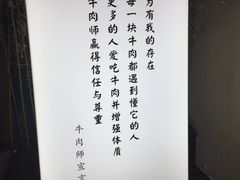 为有我的存在
每一块牛肉都遇到懂它的人
更多的人爱吃牛肉并增强体质
牛肉师赢得信任与尊重
牛肉师宣言